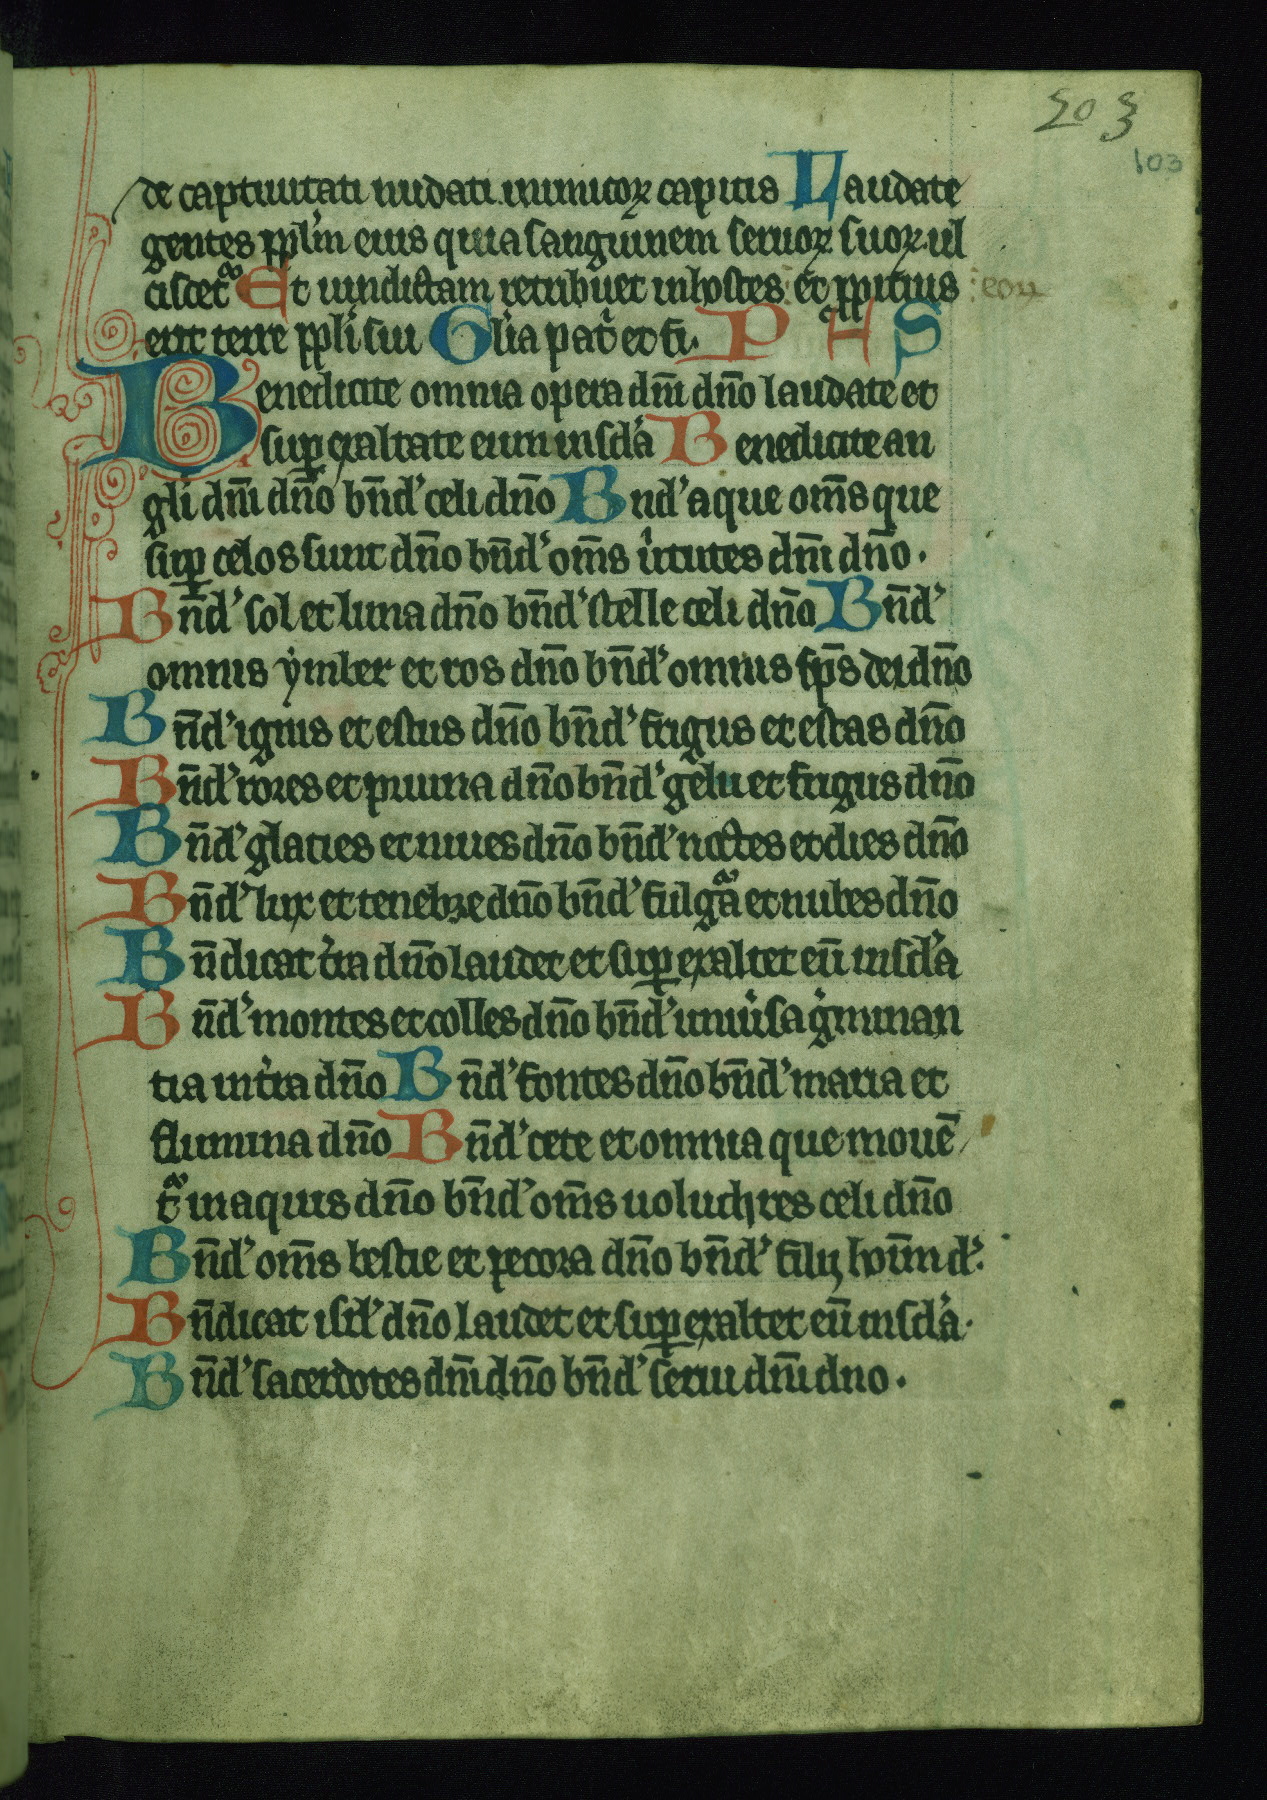 203
103
de captiuitati nudati inimicoꝝ capitis Laudate
gentes ppl'm eius quia sanguinem seruoꝝ suoꝝ ul
ciscet᷑ Et uindictam retribuet in hostes et ppitius eoꝝ
erit terre ppl'i sui Gl'ia pat̉ et fi. P H S
Benedicite omnia opera dn̄i dn̄o laudate et
suꝑ exaltate eum in scl'a Benedicite an
gli dn̄i dn̄o bn̄d' celi dn̄o Bnd' aque om̄s que
suꝑ celos sunt dn̄o bn̄d' om̄s ùtutes dn̄i dn̄o.
Bn̄d' sol et luna dn̄o bn̄d' stelle celi dn̄o Bn̄d'
omnis ymber et ros dn̄o bn̄d' omnis sp̄s dei dn̄o
Bn̄d' ignis et estus dn̄o bn̄d' frigus et estas dn̄o
Bn̄d' rores et pruina dn̄o bn̄d' gelu et frigus dn̄o
Bn̄d' glacies et niues dn̄o bn̄d' noctes et dies dn̄o
Bn̄d' lux et tenebre dn̄o bn̄d' fulgᵃa et nubes dn̄o
Bn̄dicat t'ra dn̄o laudet et suꝑ exaltet eū in scl'a
Bn̄d' montes et colles dn̄o bn̄d' uniu'sa g'minan
tia in t'ra dn̄o Bn̄d' fontes dn̄o bn̄d' maria et
flumina dn̄o Bn̄d' cete et omnia que mouē
t᷑ in aquis dn̄o bn̄d' om̄s uoluchres celi dn̄o
Bn̄d' om̄s bestie et pecora dn̄o bn̄d' filij hoīm d'.
Bn̄dicat isrl' dn̄o laudet et suꝑ exaltet eū in scl'a.
Bn̄d' sacerdotes dn̄i dn̄o bn̄d' serui dn̄i dno.